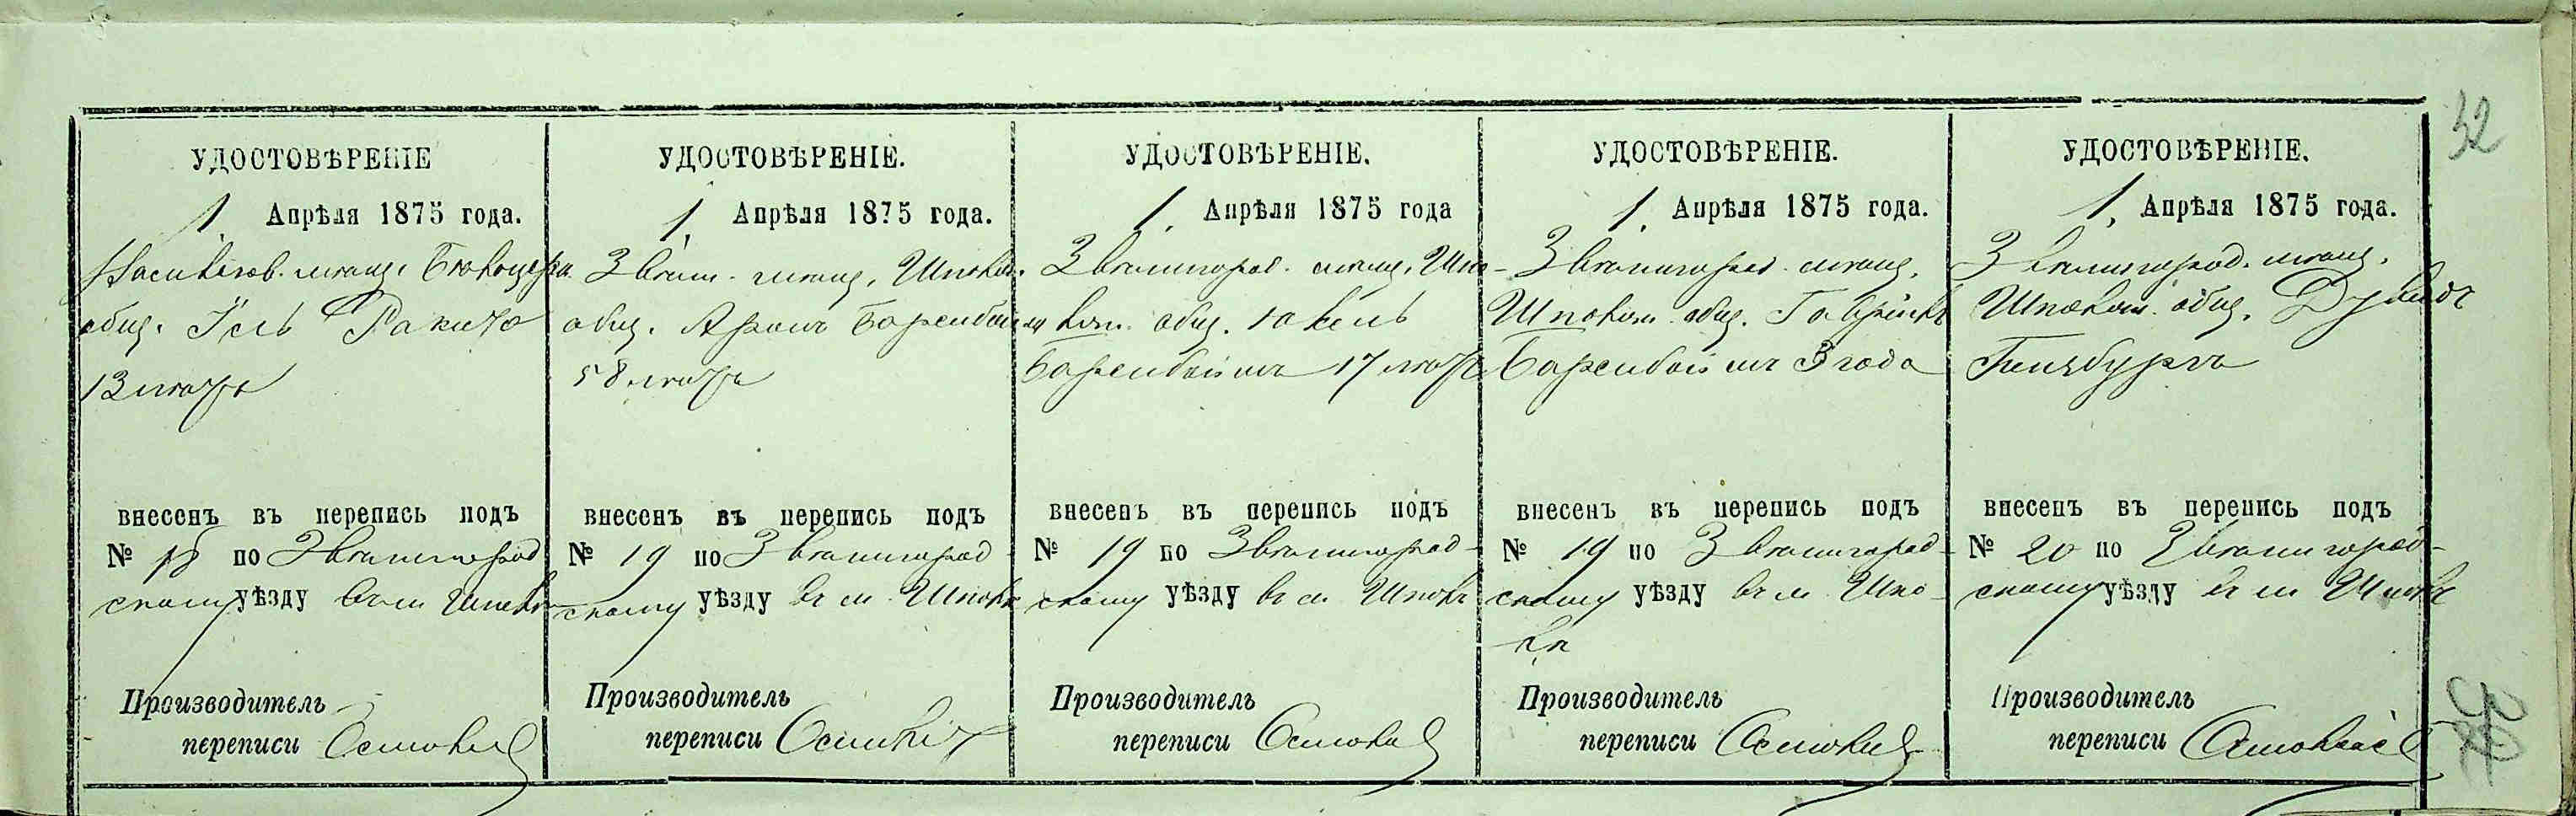 32
УДОСТОВѢРЕНІЕ
1. Апрѣля 1875 года.
Василков. мѣщ. Бѣлоцерк.
общ. Іель
13 лѣтъ
внесенъ въ перепись подъ
№ 18 по Звенигород
скому уѣзду въ м Шполѣ
Производитель
переписи
УДОСТОВѢРЕНІЕ.
1. Апрѣля 1875 года.
Звениг. мѣщ. Шполян.
общ. Аронъ Баренбоимъ
58 лѣтъ
внесенъ въ перепись подъ
№ 19 по Звенигород-
скому уѣзду въ м. Шполѣ
Производитель
переписи
УДОСТОВѢРЕНІЕ.
1. Апрѣля 1875 года
Звенигород. мѣщ. Шпо-
общ.
Баренбоимъ 17 лѣтъ
внесенъ въ перепись подъ
№ 19 по Звенигород-
скому уѣзду въ м. Шполѣ
Производитель
переписи
УДОСТОВѢРЕНІЕ.
1. Апрѣля 1875 года.
Звенигород. мѣщ.
общ.
Баренбоимъ 3 года
внесенъ въ перепись подъ
№ 19 по Звенигород-
скому уѣзду въ м. Шпо-
лѣ
Производитель
переписи
УДОСТОВѢРЕНІЕ.
1. Апрѣля 1875 года.
Звенигород. мѣщ.
общ.
Гинзбургъ
внесенъ въ перепись подъ
№ 20 по Звенигород-
скому уѣзду въ м Шполѣ
Производитель
переписи